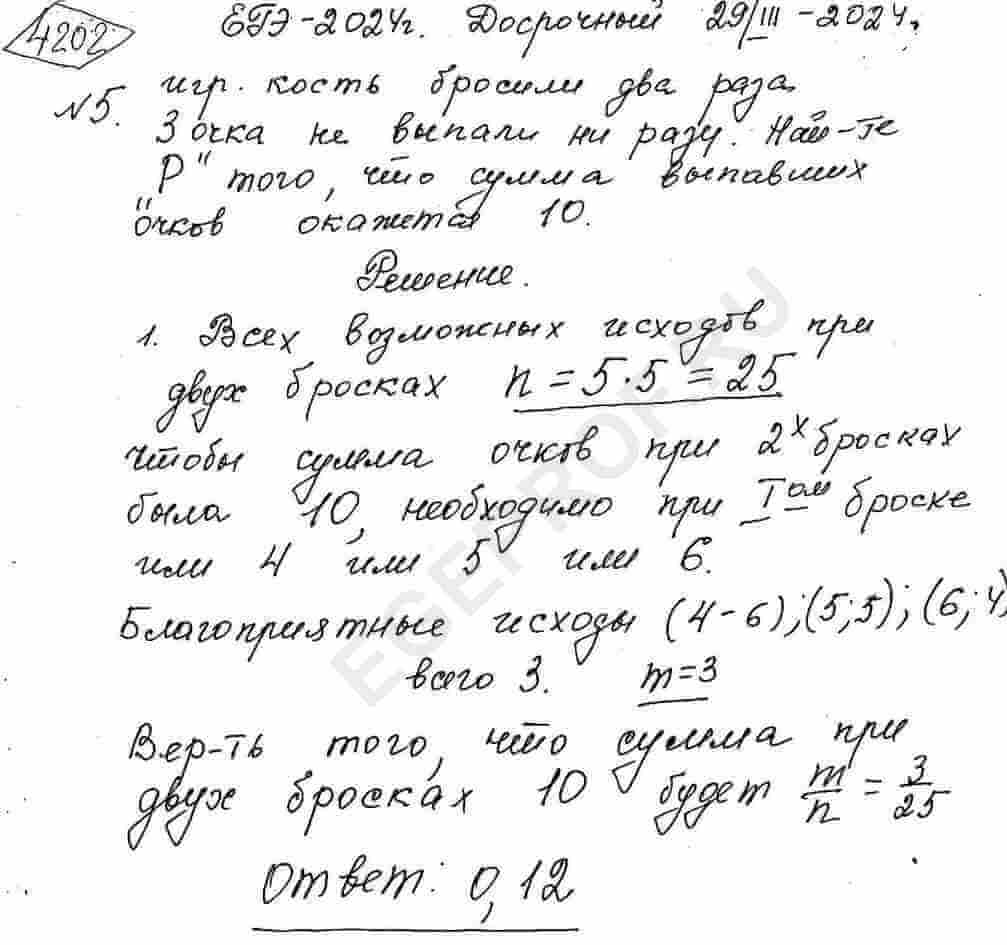 4202
ЕГЭ-2024г. Досрочный 29/III-2024г.
№5. игр. кость бросили два раза.
3 очка не выпали ни разу. Най-те
"P" того, что сумма выпавших
очков окажется 10.
Решение.
1. Всех возможных исходов при
двух бросках n = 5·5 = 25
чтобы сумма очков при 2х бросках
была 10, необходимо при Iом броске
или 4 или 5 или 6.
Благоприятные исходы (4-6); (5;5); (6;4)
всего 3. m=3
Вер-ть того, что сумма при
двух бросках 10 будет m/n = 3/25
Ответ: 0,12
EGEPROF.RU